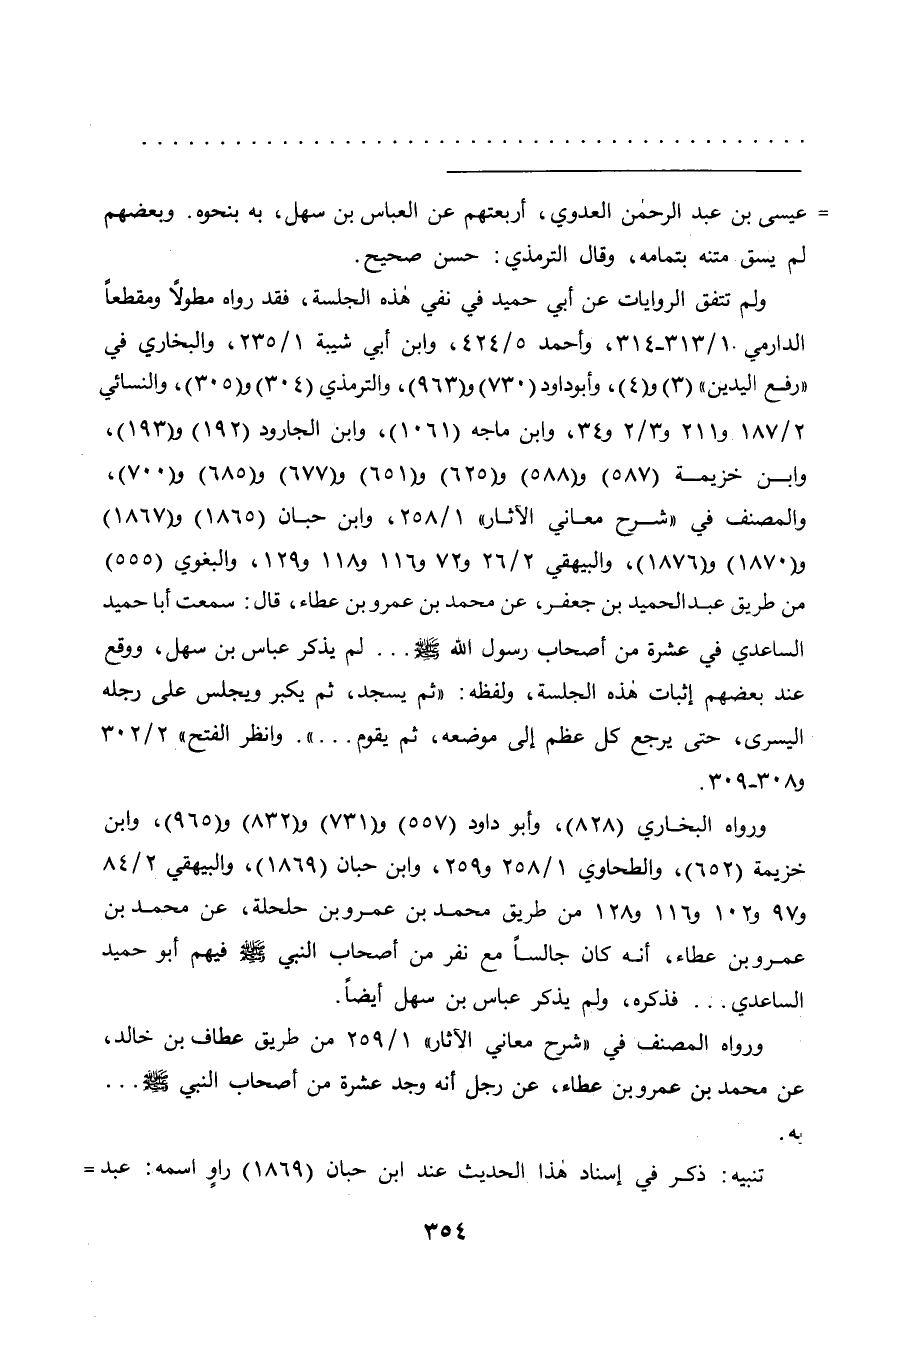 = عيسى بن عبد الرحمٰن العدوي، أربعتهم عن العباس بن سهل، به بنحوه. وبعضهم
لم يسق متنه بتمامه، وقال الترمذي: حسن صحيح.
ولم تتفق الروايات عن أبي حميد في نفي هٰذه الجلسة، فقد رواه مطولًا ومقطعاً
الدارمي ٣١٣/١-٣١٤، وأحمد ٤٢٤/٥، وابن أبي شيبة ٢٣٥/١، والبخاري في
«رفع اليدين» (٣) و(٤)، وأبوداود (٧٣٠) و(٩٦٣)، والترمذي (٣٠٤) و(٣٠٥)، والنسائي
١٨٧/٢ و٢١١ و٢/٣ و٣٤، وابن ماجه (١٠٦١)، وابن الجارود (١٩٢) و(١٩٣)،
وابن خزيمة (٥٨٧) و(٥٨٨) و(٦٢٥) و(٦٥١) و(٦٧٧) و(٦٨٥) و(٧٠٠)،
والمصنف في «شرح معاني الآثار» ٢٥٨/١، وابن حبان (١٨٦٥) و(١٨٦٧)
و(١٨٧٠) و(١٨٧٦)، والبيهقي ٢٦/٢ و٧٢ و١١٦ و١١٨ و١٢٩، والبغوي (٥٥٥)
من طريق عبدالحميد بن جعفر، عن محمد بن عمرو بن عطاء، قال: سمعت أبا حميد
الساعدي في عشرة من أصحاب رسول الله ﷺ... لم يذكر عباس بن سهل، ووقع
عند بعضهم إثبات هٰذه الجلسة، ولفظه: «ثم يسجد، ثم يكبر ويجلس على رجله
اليسرى، حتى يرجع كل عظم إلى موضعه، ثم يقوم...». وانظر الفتح» ٣٠٢/٢
و٣٠٨-٣٠٩.
ورواه البخاري (٨٢٨)، وأبو داود (٥٥٧) و(٧٣١) و(٨٣٢) و(٩٦٥)، وابن
خزيمة (٦٥٢)، والطحاوي ٢٥٨/١ و٢٥٩، وابن حبان (١٨٦٩)، والبيهقي ٨٤/٢
و٩٧ و١٠٢ و١١٦ و١٢٨ من طريق محمد بن عمرو بن حلحلة، عن محمد بن
عمرو بن عطاء، أنه كان جالساً مع نفر من أصحاب النبي ﷺ فيهم أبو حميد
الساعدي... فذكره، ولم يذكر عباس بن سهل أيضاً.
ورواه المصنف في «شرح معاني الآثار» ٢٥٩/١ من طريق عطاف بن خالد،
عن محمد بن عمرو بن عطاء، عن رجل أنه وجد عشرة من أصحاب النبي ﷺ...
به.
تنبيه: ذكر في إسناد هٰذا الحديث عند ابن حبان (١٨٦٩) راوٍ اسمه: عبد =
٣٥٤